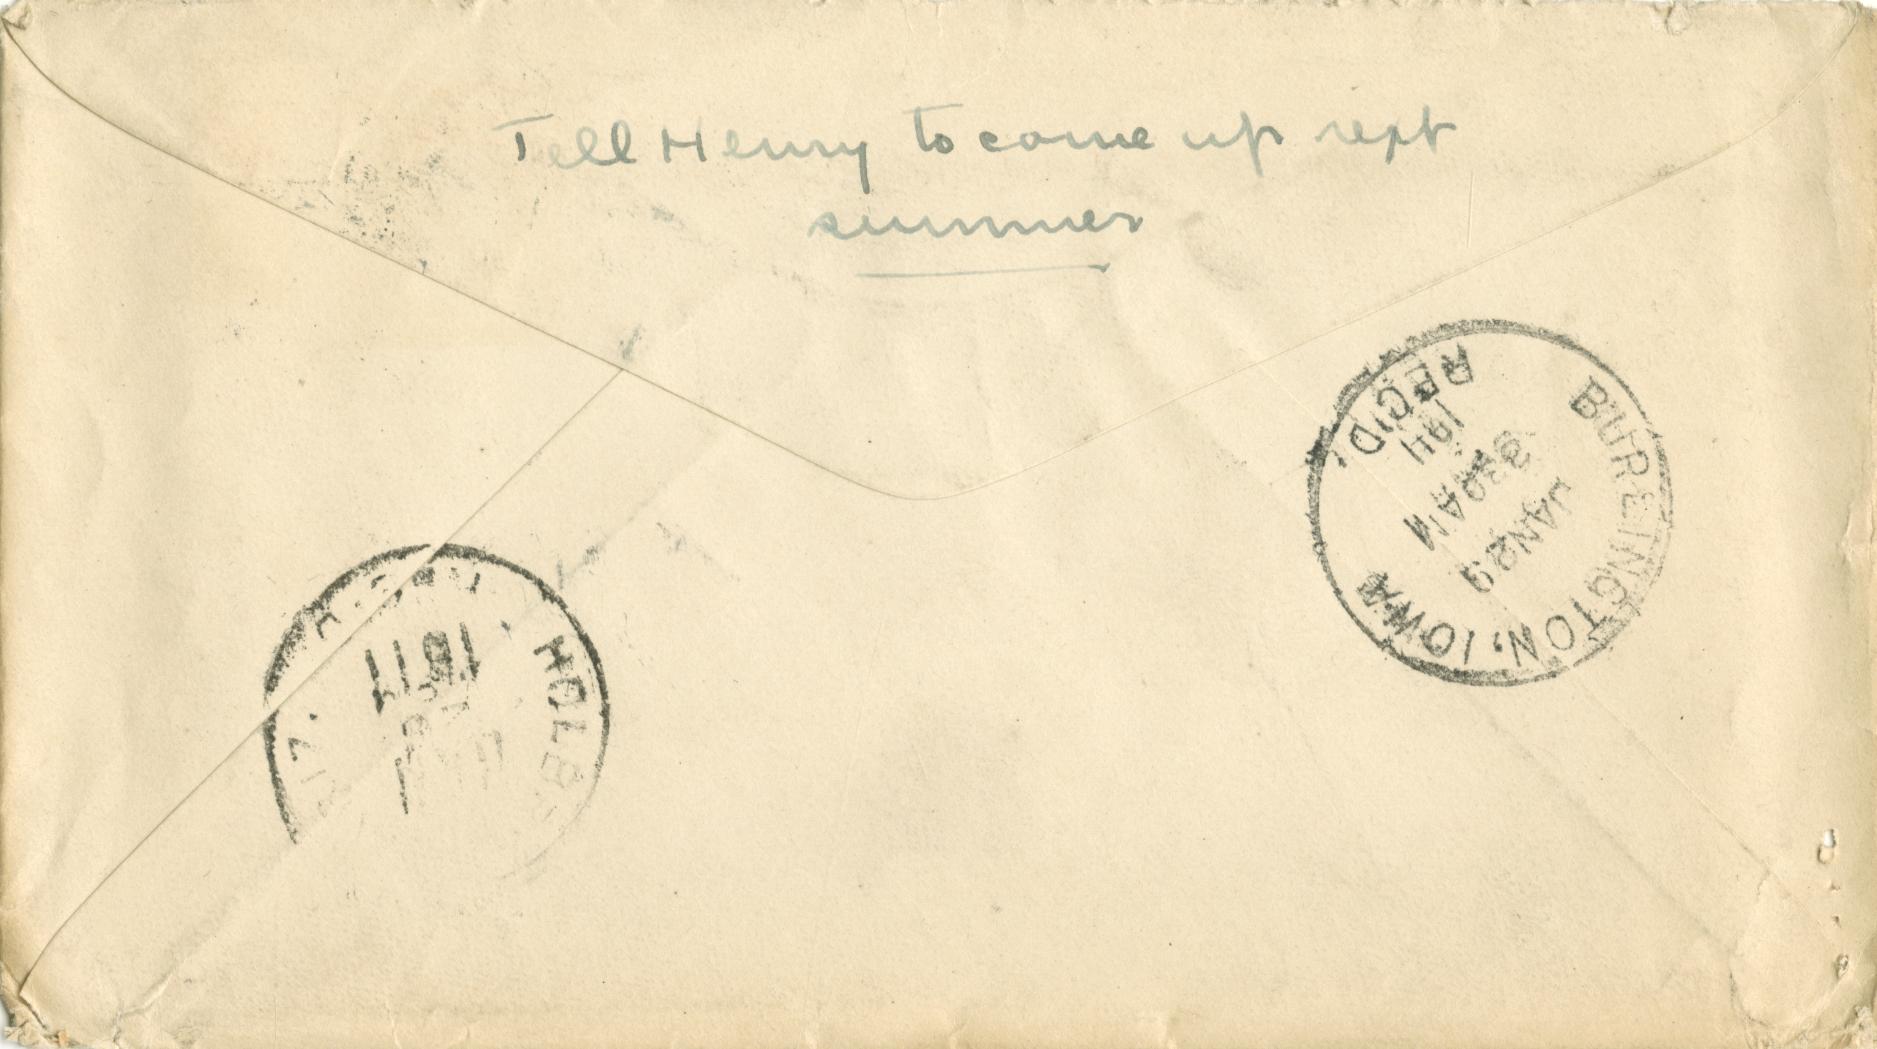 Tell Henry to come up next
summer
BURLINGTON, IOWA
REC'D.
JAN 29
1911
HOLB
1911